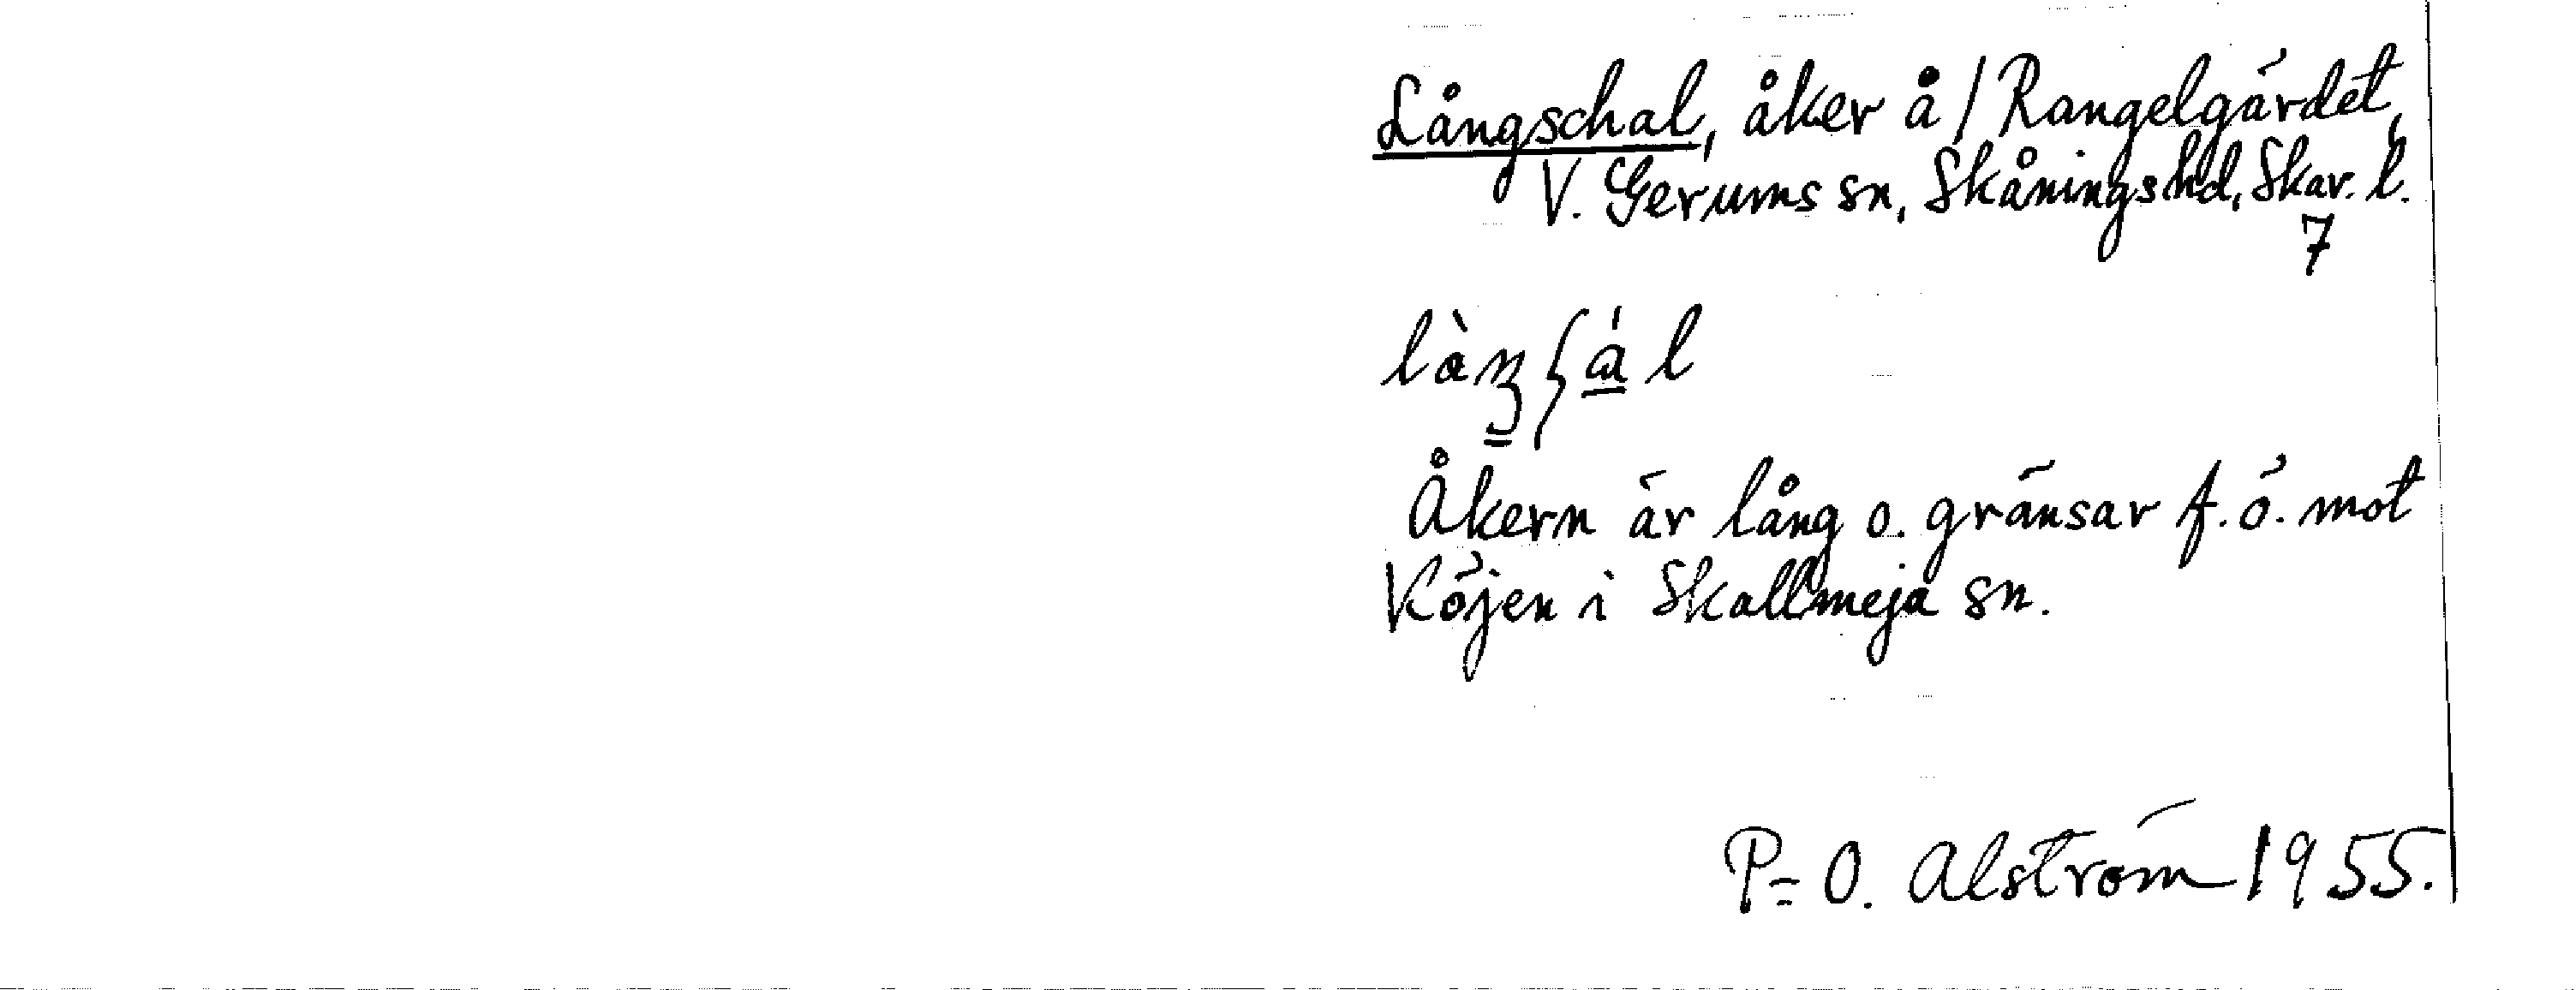 Långschal, åker å / Rangelgärdet,
V. Gerums sn, Skånings hd, Skar. l.
7
Åkern är lång o. gränsar f. ö. mot
Köjen i Skallmeja sn.
P=O. Alström 1955.